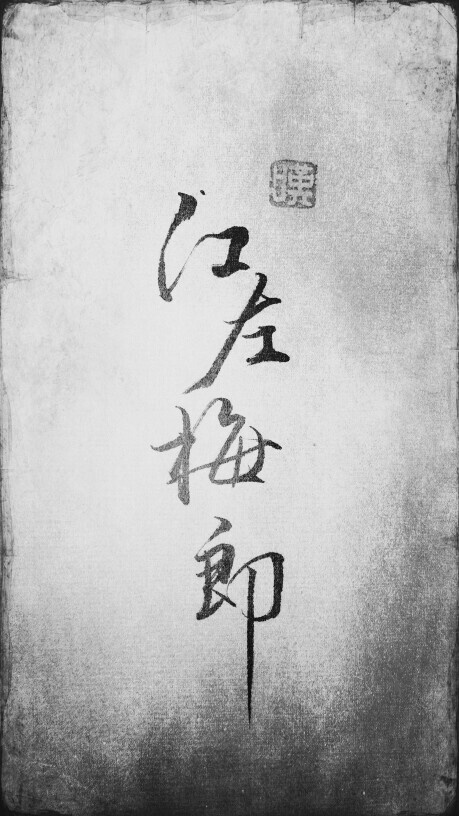 江左梅郎